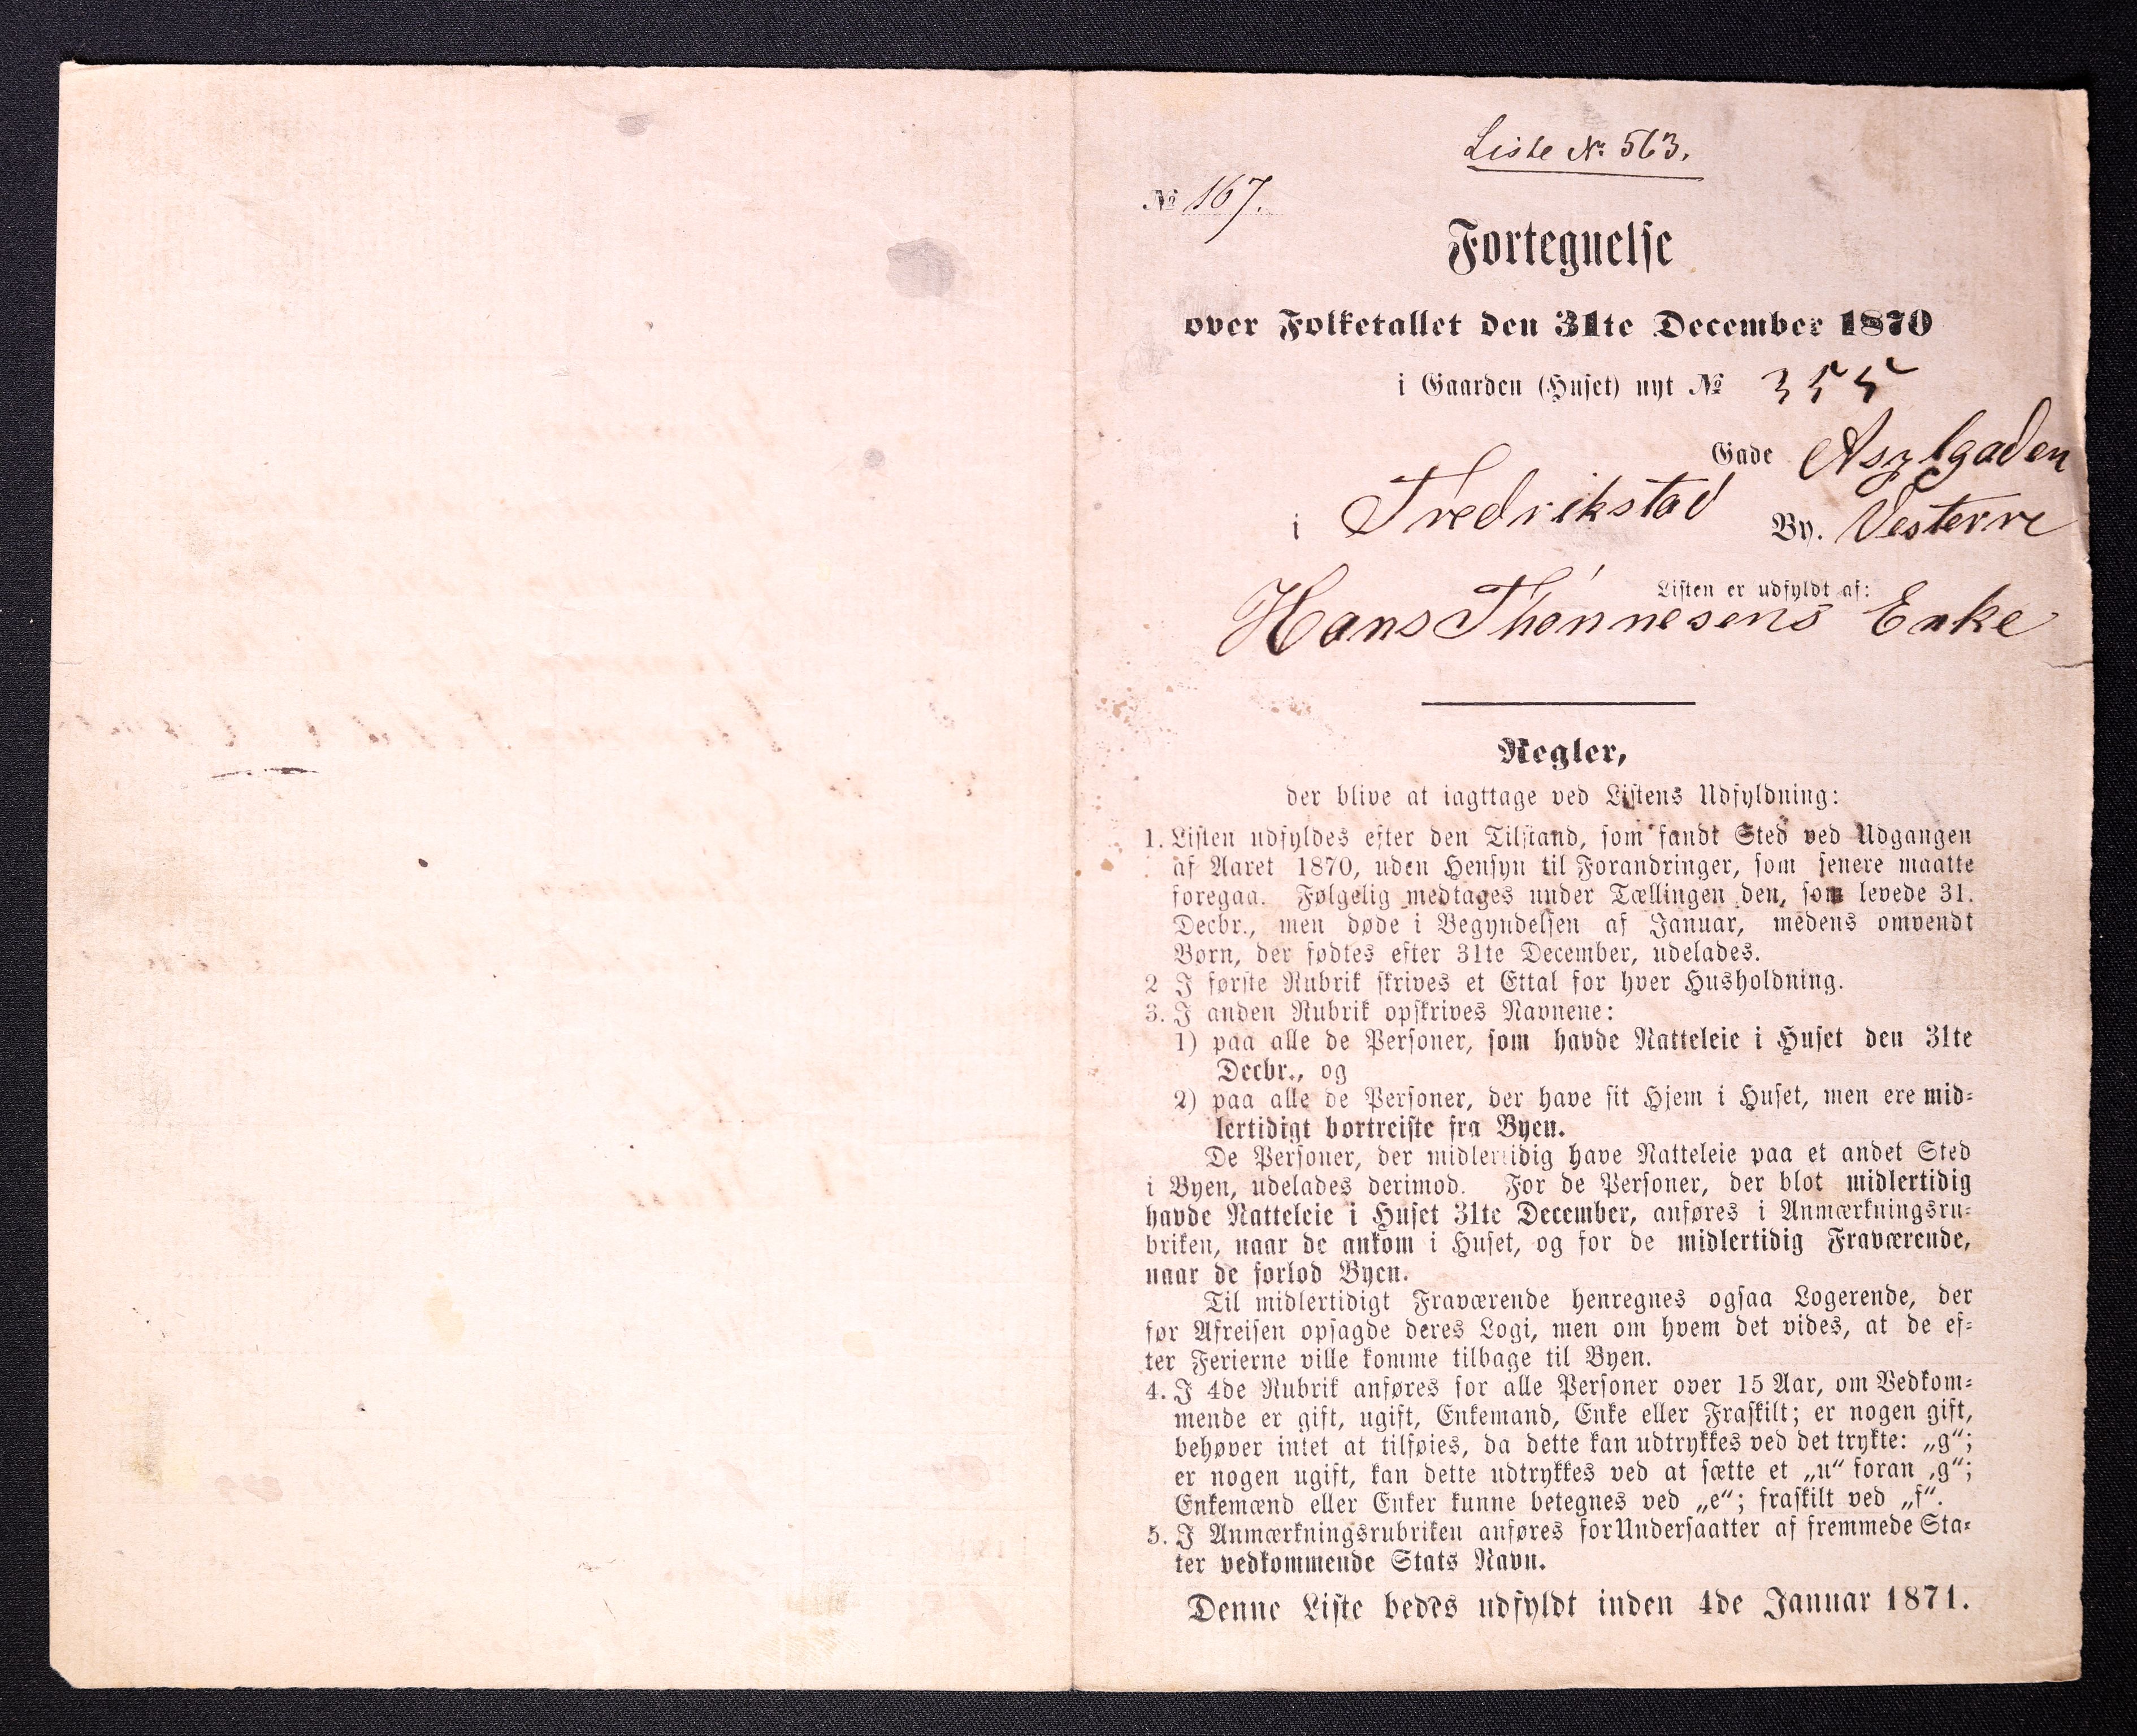 Liste № 563.
№ 167.
Fortegnelse
over Folketallet den 31te December 1870
i Gaarden (Huset) nyt № 355
Gade Asylgaden
i Fredrikstad By. Vesterre
Listen er udfyldt af:
Hans Thønnesens Enke
Regler,
der blive at iagttage ved Listens Udfyldning:
1. Listen udfyldes efter den Tilstand, som fandt Sted ved Udgangen
af Aaret 1870, uden Hensyn til Forandringer, som senere maatte
foregaa. Følgelig medtages under Tællingen den, som levede 31.
Decbr., men døde i Begyndelsen af Januar, medens omvendt
Børn, der fødtes efter 31te December, udelades.
2 I første Rubrik skrives et Ettal for hver Husholdning.
3. I anden Rubrik opskrives Navnene:
1) paa alle de Personer, som havde Natteleie i Huset den 31te
Decbr., og
2) paa alle de Personer, der have sit Hjem i Huset, men ere mid-
lertidigt bortreiste fra Byen.
De Personer, der midlertidig have Natteleie paa et andet Sted
i Byen, udelades derimod. For de Personer, der blot midlertidig
havde Natteleie i Huset 31te December, anføres i Anmærkningsru-
briken, naar de ankom i Huset, og for de midlertidig Fraværende,
naar de forlod Byen.
Til midlertidigt Fraværende henregnes ogsaa Logerende, der
før Afreisen opsagde deres Logi, men om hvem det vides, at de ef-
ter Ferierne ville komme tilbage til Byen.
4. I 4de Rubrik anføres for alle Personer over 15 Aar, om Vedkom-
mende er gift, ugift, Enkemand, Enke eller Fraskilt; er nogen gift,
behøver intet at tilføies, da dette kan udtrykkes ved det trykte: „g“;
er nogen ugift, kan dette udtrykkes ved at sætte et „u“ foran „g“;
Enkemænd eller Enker kunne betegnes ved „e“; fraskilt ved „f“.
5. I Anmærkningsrubriken anføres for Undersaatter af fremmede Sta-
ter vedkommende Stats Navn.
Denne Liste bedes udfyldt inden 4de Januar 1871.